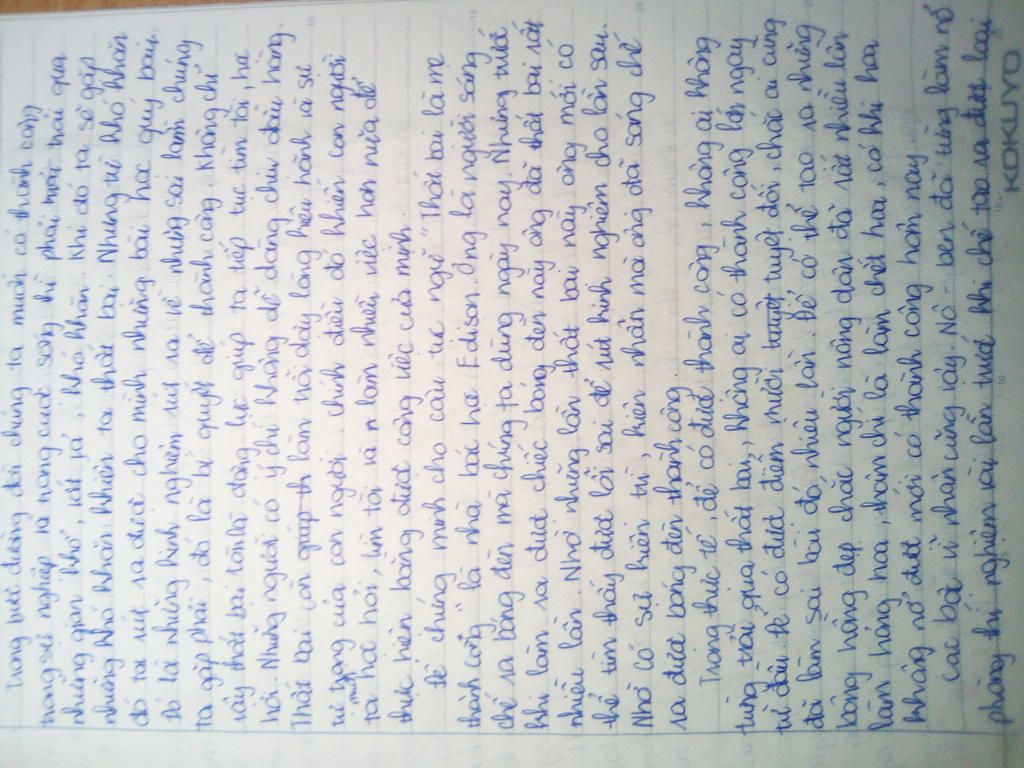 Trong bước đường đời chúng ta muốn có thành công
trong sự nghiệp và trong cuộc sống thì phải trải qua
những gian khổ, vất vả, khó khăn. Khi đó ta sẽ gặp
những khó khăn nhiên ta thất bại. Những từ khó khăn
đó ta rút ra được cho mình những bài học quý báu.
Đó là những kinh nghiệm rút ra về những sai lầm chúng
ta gặp phải, đó là bí quyết để thành công. Không chỉ
vậy thất bại còn là động lực giúp ta tiếp tục tìm tòi, học
hỏi. Những người có ý chí không dễ dàng chịu đầu hàng.
Thất bại còn giúp th làm trỗi dậy lòng kiêu hãnh và sự
tự trọng của con người chính điều đó khiến con người
ta ham học hỏi, tìm tòi và n làm nhiều việc hơn nữa để
thực hiện bằng được công việc của mình.
Để chứng minh cho câu tục ngữ "Thất bại là mẹ
thành công" là nhà bác học Edison. Ông là người sáng
chế ra bóng đèn mà chúng ta dùng ngày nay. Nhưng trước
khi làm ra được chiếc bóng đèn này ông đã thất bại rất
nhiều lần. Nhờ những lần thất bại này ông mới có
thể tìm thấy được lỗi sai để rút kinh nghiệm cho lần sau.
Nhờ có sự kiên trì, kiên nhẫn mà ông đã sáng chế
ra được bóng đèn thành công.
Trong thực tế, để có được thành công, không ai không
từng trải qua thất bại, không ai có thành công lớn ngay
từ đầu. Để có được điểm mười tuyệt đối, chắc ai cũng
đã làm sai bài đó nhiều lần. Để có thể tạo ra những
bông hồng đẹp chắc người nông dân đã rất nhiều lần
làm hỏng hoa, thậm chí là làm chết hoa, có khi hoa
không nở được mới có thành công hôm nay.
Các bậc vĩ nhân cũng vậy. Nô-ben đã từng làm nổ
phòng thí nghiệm vài lần trước khi chế tạo ra được loại
KOKUYO